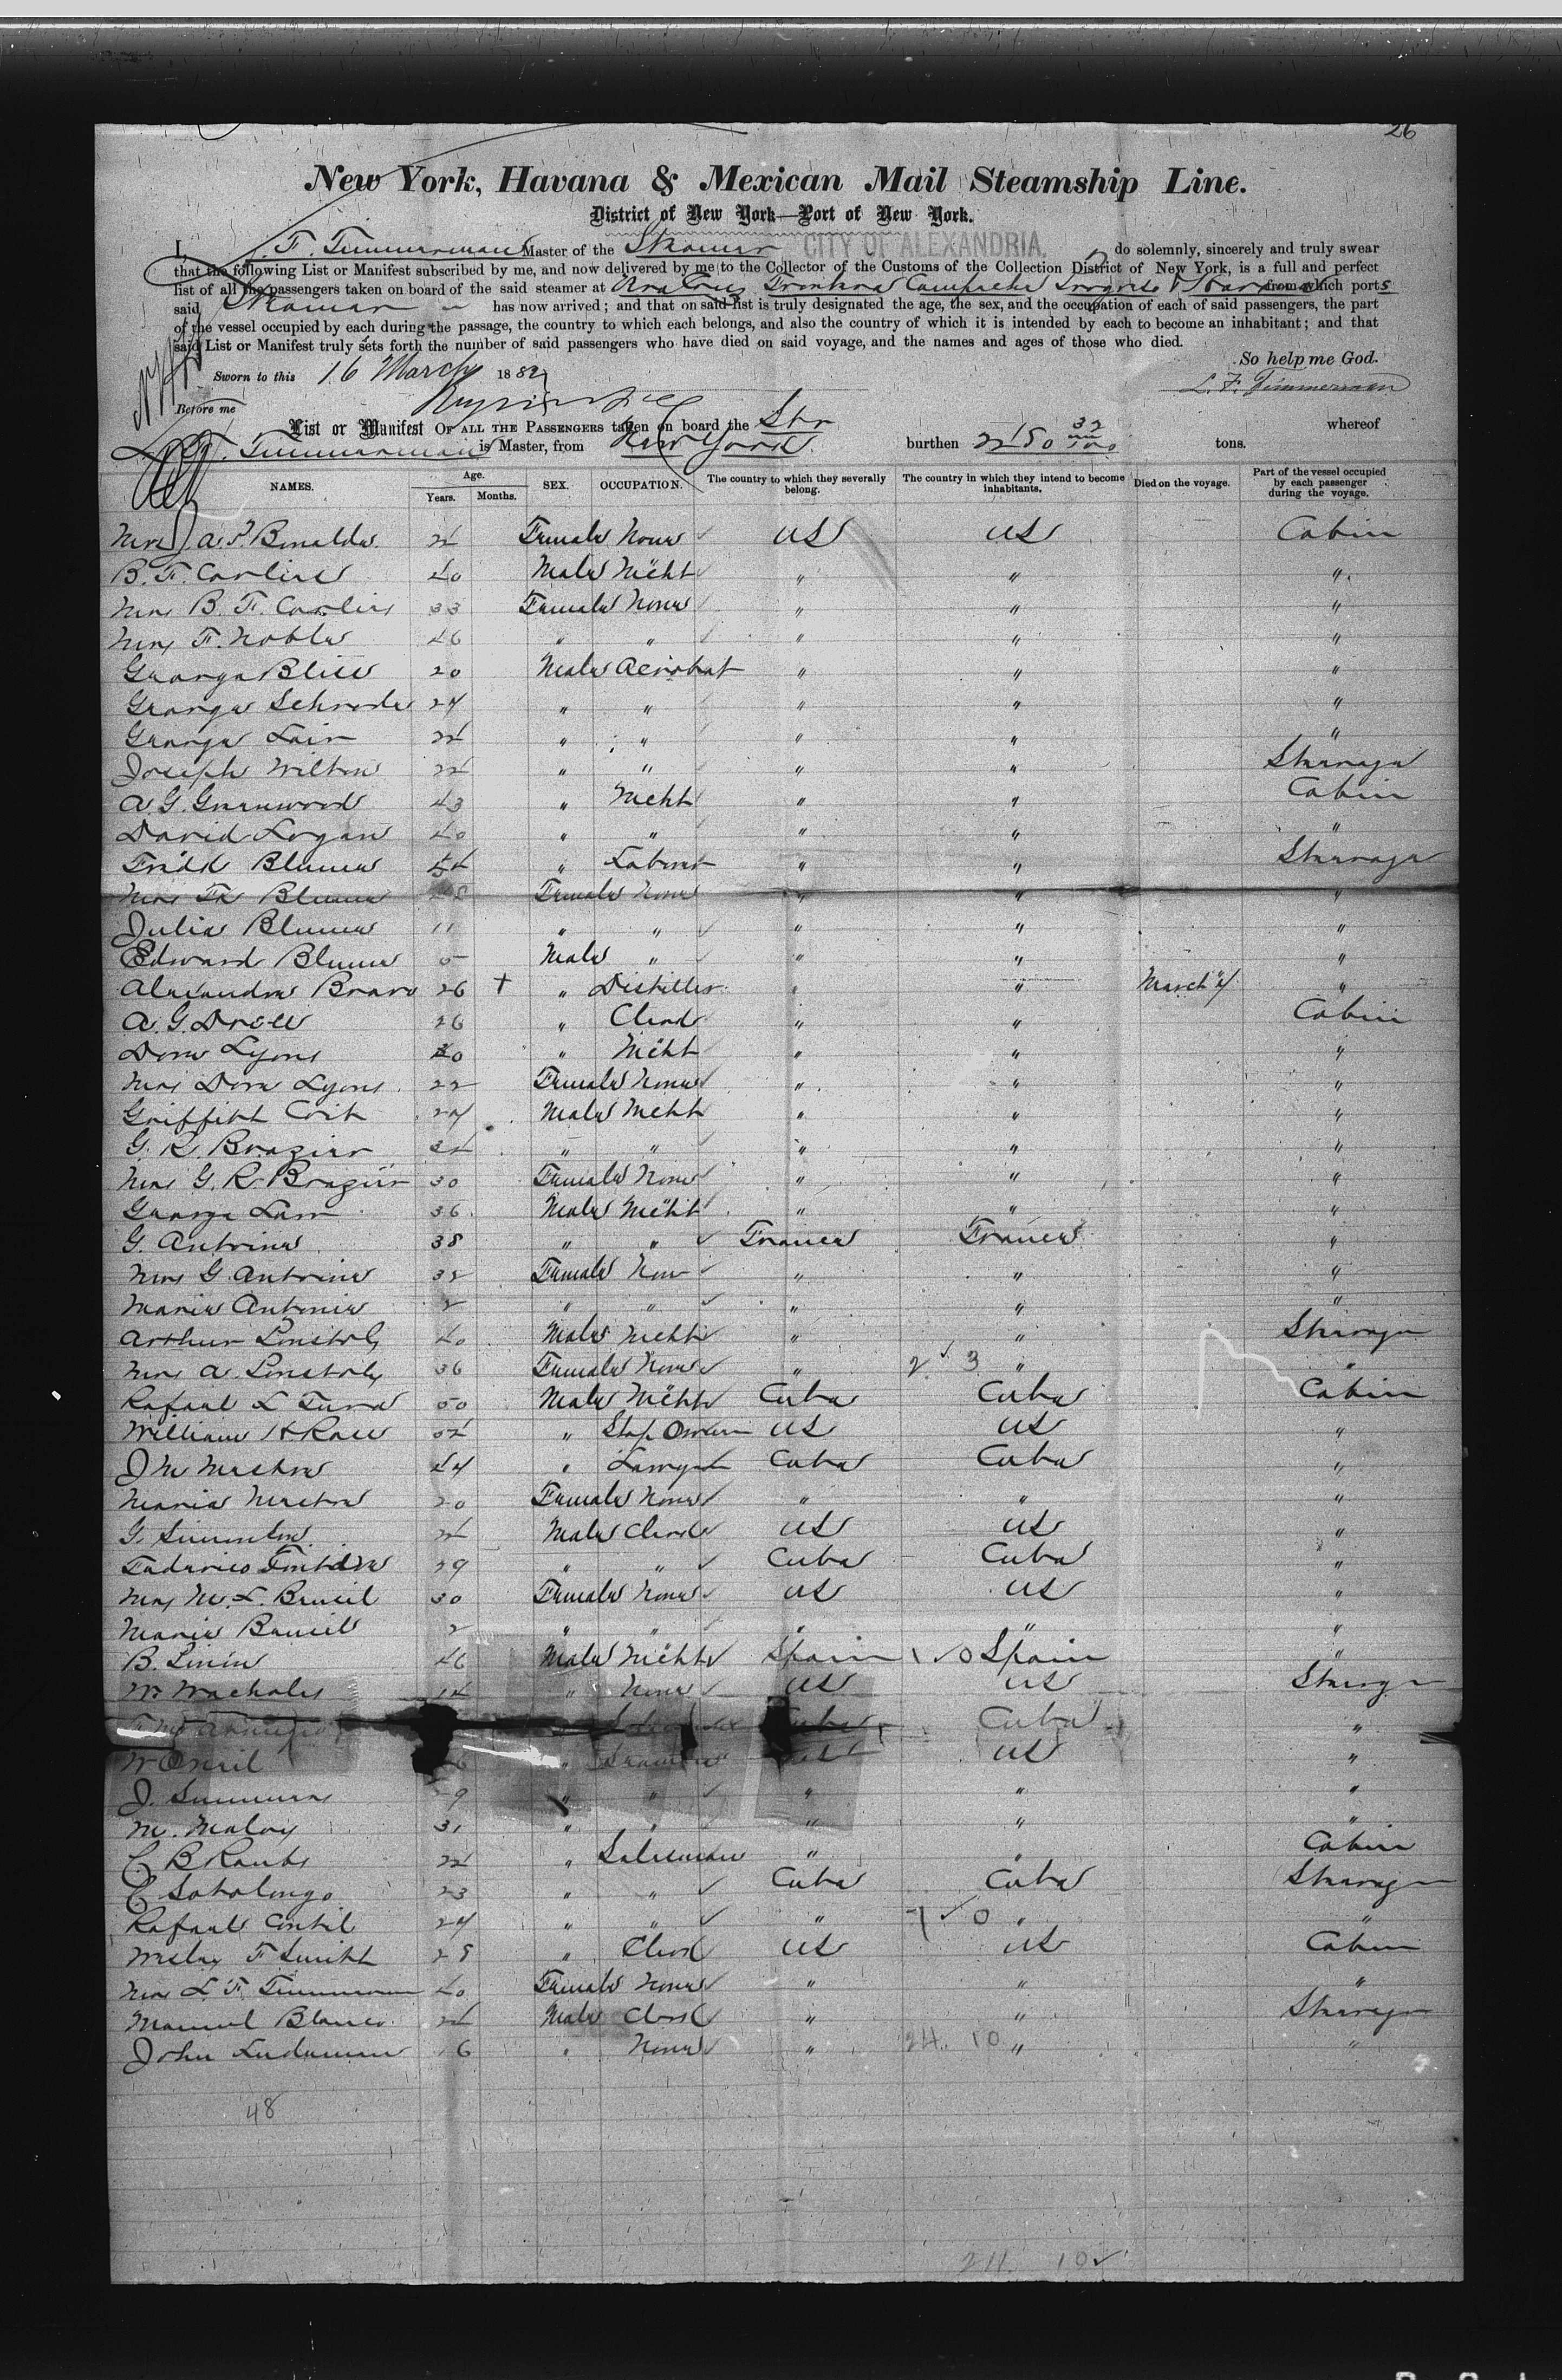 26
New York, Havana & Mexican Mail Steamship Line.
District of New York—Port of New York.
I, L. F. Timmerman Master of the Steamer CITY OF ALEXANDRIA. do solemnly, sincerely and truly swear
that the following List or Manifest subscribed by me, and now delivered by me to the Collector of the Customs of the Collection District of New York, is a full and perfect
list of all the passengers taken on board of the said steamer at Vera Cruz Frontera Campeche Progreso & Havana from which ports
said Steamer has now arrived; and that on said list is truly designated the age, the sex, and the occupation of each of said passengers, the part
of the vessel occupied by each during the passage, the country to which each belongs, and also the country of which it is intended by each to become an inhabitant; and that
said List or Manifest truly sets forth the number of said passengers who have died on said voyage, and the names and ages of those who died.
So help me God.
Sworn to this 16 March 1882
L. F. Timmerman
Before me
List or Manifest OF ALL THE PASSENGERS taken on board the Str whereof
L. F. Timmerman is Master, from New York burthen 2480 32/100 tons.
NAMES. Age. Years. Months. SEX. OCCUPATION. The country to which they severally belong. The country in which they intend to become inhabitants. Died on the voyage. Part of the vessel occupied by each passenger during the voyage.
Female None US US Cabin
B. F. Carlin 40 Male Mcht " " "
Mrs B. F. Carlin 33 Female None " " "
Mrs F. Noble 46 " " " " "
George Bliss 20 Male Acrobat " " "
George Schrode 24 " " " " "
George Lair 24 " " " " "
Joseph Wilton 24 " " " " Steerage
A. G. Greenwood 43 " Mcht " " Cabin
David Logan 40 " " " " "
Fredk Blume " Laborer " " Steerage
Mrs Fk Blume Female None " " "
Julia Blume 11 " " " " "
Edward Blume 5 Male " " " "
Alexandre Bravo 26 + " Distiller " " March 4 "
A. G. Drew 26 " Clerk " " Cabin
Dom Lyons 40 " Mcht " " "
Mrs Dom Lyons 22 Female None " " "
Griffith Coit 24 Male Mcht " " "
G. R. Brazier 34 " " " " "
Mrs G. R. Brazier 30 Female None " " "
George Lam 36 Male Mcht " " "
G. Antoine 38 " " France France "
Mrs G. Antoine 32 Female None " " "
Marie Antoine 2 " " " " "
Arthur 40 Male Mcht " " Steerage
Mrs A. 36 Female None " 2 3 " "
Rafael L 50 Male Mcht Cuba Cuba Cabin
William H Rowe 54 " Ship Owner US US "
J M Mestre 44 " Lawyer Cuba Cuba "
Maria Mestre 20 Female None " " "
G. Simonton 24 Male Clerk US US "
Federico 29 " " Cuba Cuba "
Mrs M. L. 30 Female None US US "
Marie 2 " " " " "
B. 46 Male Mcht Spain 1 0 Spain "
14 " None US US Steerage
Cuba Cuba "
W Oneil " US US "
J. Summers " " " " "
M. Maloy 31 " " " " "
C B 24 " Salesman " " Cabin
C Sotolongo 23 " " Cuba Cuba Steerage
Rafael 24 " " " 7 0 " "
Wesley F Smith 28 " Clerk US US Cabin
Mrs L. F. Timmerman 40 Female None " " "
Manuel Blanco 24 Male Clerk " " Steerage
John 16 " None " 24 10 " "
48
24 10